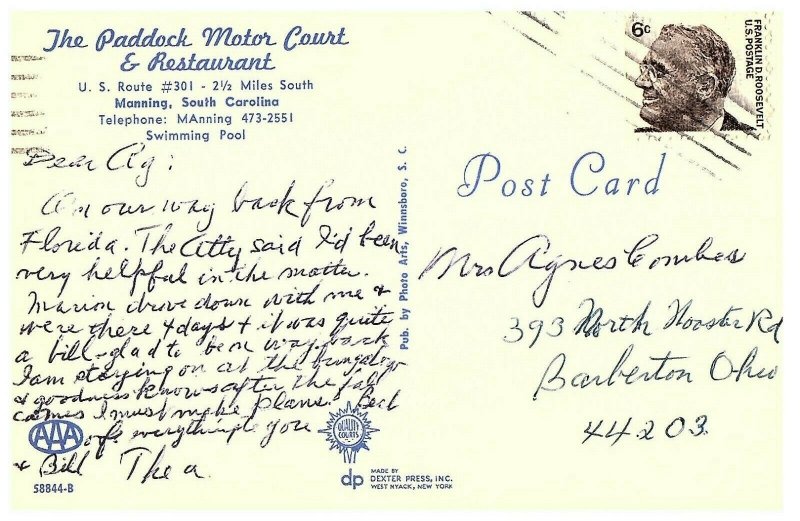 The Paddock Motor Court
& Restaurant
U. S. Route #301 - 2½ Miles South
Manning, South Carolina
Telephone: MAnning 473-2551
Swimming Pool
6c
FRANKLIN D. ROOSEVELT
U.S. POSTAGE
Dear Ag:
On our way back from
Florida. The Atty said I'd been
very helpful in the matter.
Marion drove down with me &
were there 4 days & it was quite
a bill - glad to be on way back
I am staying on at the bungalogo
& goodness knows after the fall
comes I must make plans. Best
of everything to you
& Bill Thea
Pub. by Photo Arts, Winnsboro, S. C.
Post Card
Mrs Agnes Combes
393 North Wooster Rd
Barberton Ohio
44203
AAA
QUALITY
COURTS
58844-B
dp
MADE BY
DEXTER PRESS, INC.
WEST NYACK, NEW YORK